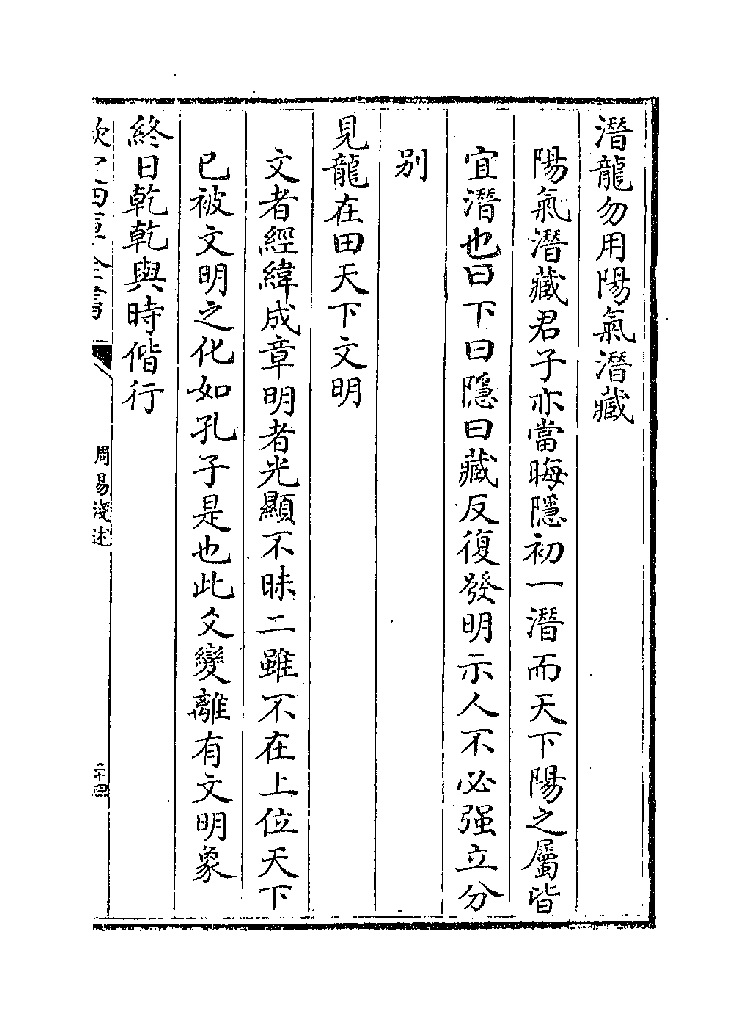 潛龍勿用陽氣潛藏
陽氣潛藏君子亦當晦隱初一潛而天下陽之屬皆
宜潛也曰下曰隱曰藏反復發明示人不必强立分
别
見龍在田天下文明
文者經緯成章明者光顯不昧二雖不在上位天下
已被文明之化如孔子是也此爻變離有文明象
終日乾乾與時偕行
欽定四庫全書
周易淺述
二十四